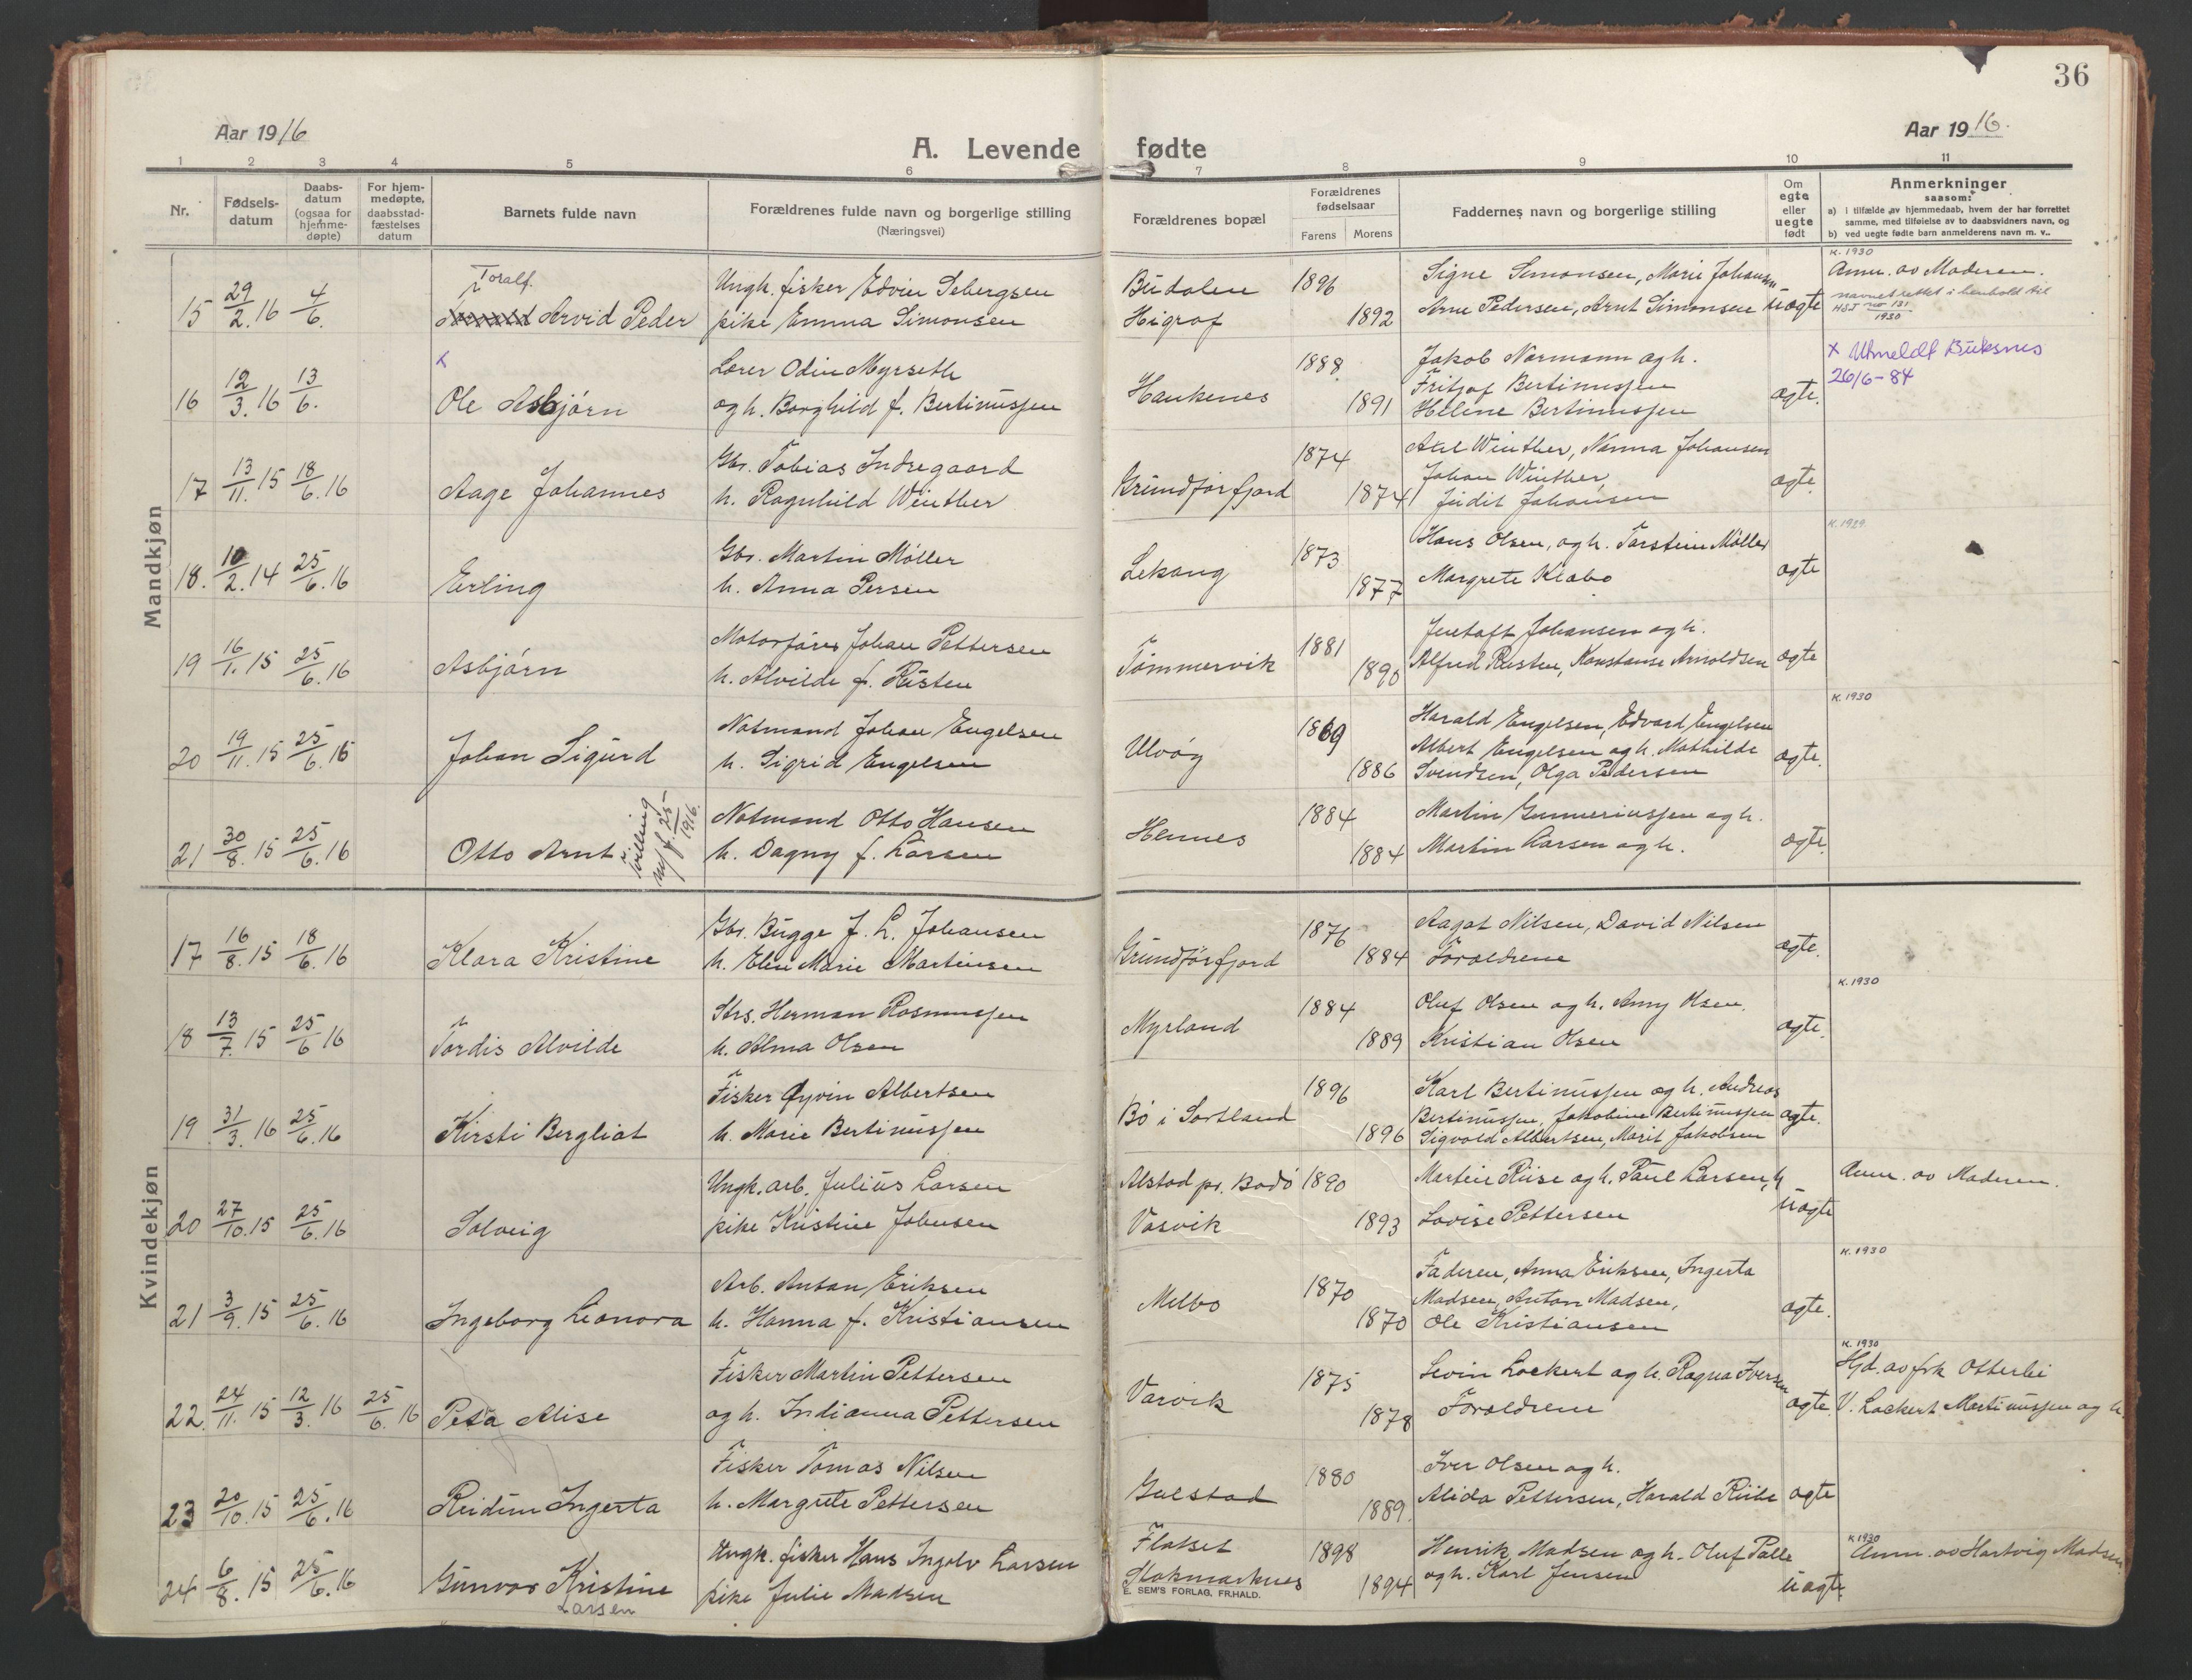 36
Aar 1916
A. Levende fødte
Aar 1916.
1 2 3 4 5 6 7 8 9 10 11
Nr.
Fødsels-datum
Daabs-datum (ogsaa for hjemme-døpte)
For hjem-medøpte, daabsstad-fæstelses datum
Barnets fulde navn
Forældrenes fulde navn og borgerlige stilling
(Næringsvei)
Forældrenes bopæl
Forældrenes fødselsaar
Farens Morens
Faddernes navn og borgerlige stilling
Om egte eller uegte født
Anmerkninger
saasom:
a) i tilfælde av hjemmedaab, hvem der har forrettet samme, med tilføielse av to daabsvidners navn, og
b) ved uegte fødte barn anmelderens navn m. v..
Mandkjøn
15 29/2.16 4/6.
Toralf.
Arvid Peder
Ungk. fisker Edvin Sebergsen
pike Emma Simonsen
Budalen
Higraf
1896
1892
Signe Simonsen, Marie Johansen
Arne Pedersen, Arnt Simonsen
uægte
K. 1930
Anm. av Moderen.
navnet rettet i henhold til
1930
16 12/3.16 13/6.
x
Ole Asbjørn
Lærer Odin Myrseth
og h. Borghild f. Bertinussen
Haukenes
1888
1891
Jakob Normann og h.
Fritjof Bertinussen
Helene Bertinussen
ægte.
x Utmeldt Buksnes
26/6-84
17 13/11.15 18/6.16
Aage Johannes
Gbr. Tobias Indregaard
h. Ragnhild Winther
Grundforfjord
1874
1874
Axel Winther, Nanna Johansen
Johan Winther,
Judit Johansen
ægte.
18. 10/2.14 25/6.16
Erling
Gbr. Martin Møller
h. Anna Persen
Lekang
1873
1877
Hans Olsen, og h. Torstein Møller
Margrete Klæbo
ægte
K. 1929
19 16/1.15 25/6.16
Asbjørn
Motorfører Johan Pettersen
h. Alvilde f. Risten
Tømmervik
1881
1890
Jentoft Johansen og h.
Alfred Risten, Konstanse Arnoldsen
ægte
20 19/11.15 25/6.16
Johan Sigurd
Notmand Johan Engelsen
h. Sigrid Engelsen
Ulvøy
1869
1886
Harald Engelsen, Edvard Engelsen
Albert Engelsen og h. Mathilde
Svendsen, Olga Pedersen
ægte.
K. 1930
21 30/8.15 25/6.16
Otto Arnt
Tvilling
Notmand Otto Hansen
h. Dagny f. Larsen
Hennes
1884
1884
Martin Gunneriussen og h.
Martin Larsen og h.
ægte.
Kvindekjøn
17 16/8.15 18/6.16
Klara Kristine
Gbr. Bugge J. L. Johansen
h. Elen Marie Martinsen
Grundførfjord
1876
1884
Aagot Nilsen, David Nilsen
Forældrene
ægte.
18 13/7.15 25/6 16
Tordis Alvilde
Strs. Herman Rasmussen
h. Alma Olsen
Myrland
1884
1889
Oluf Olsen og h. Anny Olsen.
Kristian Olsen
ægte.
K. 1930
19 31/3.16 25/6.16
Kirsti Bergliot
Fisker Øyvin Albertsen
h. Marie Bertinussen
Bø i Sortland
1896
1896
Karl Bertinussen og h. Andreas
Bertinussen, Jakobine Bertinussen
Sigvald Albertsen, Marit Jakobsen
ægte.
20 27/10.15 25/6.16
Solveig
Ungk. arb. Julius Larsen
pike Kristine Johnsen
Alstad pr. Bodø
Vasvik
1890
1893
Martin Riise og h. Paul Larsen, h
Lovise Pettersen
uægte
Anm. av Moderen.
21 3/9.15 25/6.16
Ingeborg Leonora
Arb. Anton Eriksen
h. Hanna f. Kristiansen
Melbo
1870
1870
Faderen, Anna Eriksen, Ingerta
Madsen, Anton Madsen,
Ole Kristiansen
ægte.
K. 1930
22. 24/11.15 12/3.16 25/6.16
Peta Alise
Fisker Martin Pettersen
og h. Indianna Pettersen
Varvik
1875
1878
Sevin Lockert og h. Ragna Iversen
Forældrene
ægte.
K. 1930
Hjd. av frk Otterlei
V. Lockert Martinussen og h.
23 20/10.15 25/6.16
Reidun Ingerta
Fisker Tomas Nilsen
h. Margrete Pettersen
Gulstad
1880
1889.
Iver Olsen og h.
Alida Pettersen, Harald Riibe
ægte
24 6/8.15 25/6.16
Gunvor Kristine
Larsen
Ungk. fisker Hans Ingolv Larsen
pike Julie Madsen
Flatset
Stokmarknes
1898
1894
Henrik Madsen og h. Oluf Palle
og h. Karl Jensen
uægte
K 1930
Anm. av Hartvig Madsen
E. SEM'S FORLAG, FR.HALD.